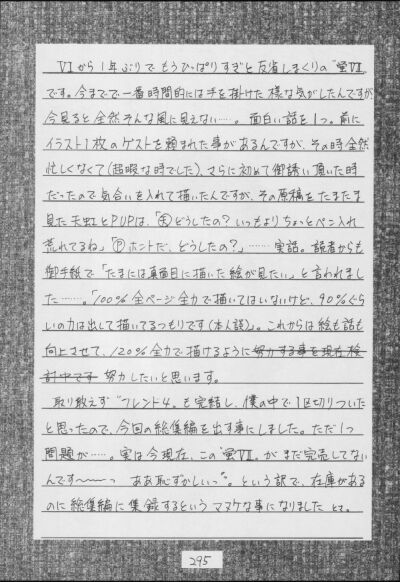 VIから1年ぶりでもうひっぱりすぎと反省しまくりの"蛍VII"
です。今までで一番時間的には手を掛けた様な気がしたんですが
今見ると全然そんな風に見えない……。面白い話を1つ。前に
イラスト1枚のゲストを頼まれた事があるんですが、その時全然
忙しくなくて(超暇な時でした)、さらに初めて御誘い頂いた時
だったので気合いを入れて描いたんですが、その原稿をたまたま
見た天虹とPUPは、「㊝どうしたの?いつもよりちょっとペン入れ
荒れてるね」「Ⓟホントだ、どうしたの?」……実話。読者からも
御手紙で「たまには真面目に描いた絵が見たい」と言われまし
た……。「100%全ページ全力で描いてはいないけど、90%ぐら
いの力は出して描いてるつもりです(本人談)」。これからは絵も話も
向上させて、120%全力で描けるように努力する事を現在検
討中です 努力したいと思います。
取り敢えず"フレンド4"も完結し、僕の中で1区切りついた
と思ったので、今回の総集編を出す事にしました。ただ1つ
問題が……。実は今現在、この"蛍VII"がまだ完売してない
んです〜〜っ ああ恥ずかしいっ。という訳で、在庫がある
のに総集編に集録するというマヌケな事になりました
295